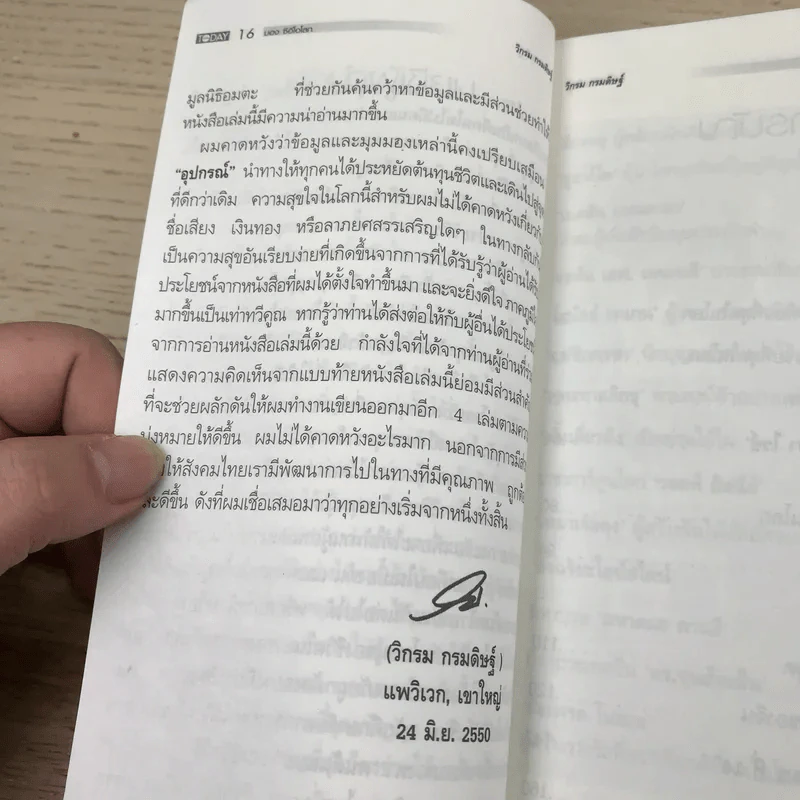 TODAY 16 มอง ซีอีโอโลก
วิกรม กรมดิษฐ์
มูลนิธิอมตะ ที่ช่วยกันค้นคว้าหาข้อมูลและมีส่วนช่วยทำให้
หนังสือเล่มนี้มีความน่าอ่านมากขึ้น
ผมคาดหวังว่าข้อมูลและมุมมองเหล่านี้คงเปรียบเสมือน
“อุปกรณ์” นำทางให้ทุกคนได้ประหยัดต้นทุนชีวิตและเดินไปสู่
ที่ดีกว่าเดิม ความสุขใจในโลกนี้สำหรับผมไม่ได้คาดหวังเกี่ยวกับ
ชื่อเสียง เงินทอง หรือลาภยศสรรเสริญใดๆ ในทางกลับกัน
เป็นความสุขอันเรียบง่ายที่เกิดขึ้นจากการที่ได้รับรู้ว่าผู้อ่านได้
ประโยชน์จากหนังสือที่ผมได้ตั้งใจทำขึ้นมา และจะยิ่งดีใจ ภาคภูมิใจ
มากขึ้นเป็นเท่าทวีคูณ หากรู้ว่าท่านได้ส่งต่อให้กับผู้อื่นได้ประโยชน์
จากการอ่านหนังสือเล่มนี้ด้วย กำลังใจที่ได้จากท่านผู้อ่านที่
แสดงความคิดเห็นจากแบบท้ายหนังสือเล่มนี้ย่อมมีส่วนสำคัญ
ที่จะช่วยผลักดันให้ผมทำงานเขียนออกมาอีก 4 เล่มตามความ
มุ่งหมายให้ดีขึ้น ผมไม่ได้คาดหวังอะไรมาก นอกจากการมี
ให้สังคมไทยเรามีพัฒนาการไปในทางที่มีคุณภาพ ถูกต้อง
และดีขึ้น ดังที่ผมเชื่อเสมอมาว่าทุกอย่างเริ่มจากหนึ่งทั้งสิ้น
(วิกรม กรมดิษฐ์)
แพวิเวก, เขาใหญ่
24 มิ.ย. 2550
วิกรม กรมดิษฐ์